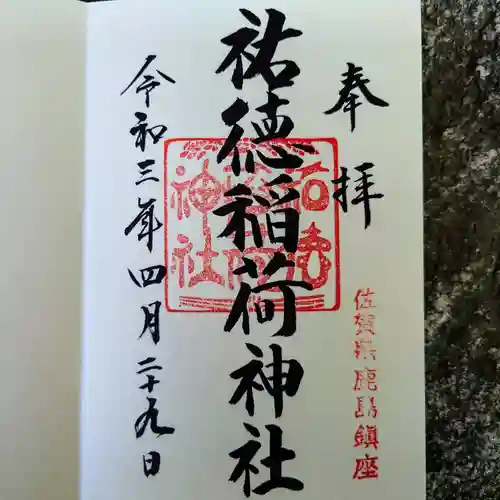 奉拝
佐賀県鹿島鎮座
祐徳稲荷神社
令和三年四月二十九日